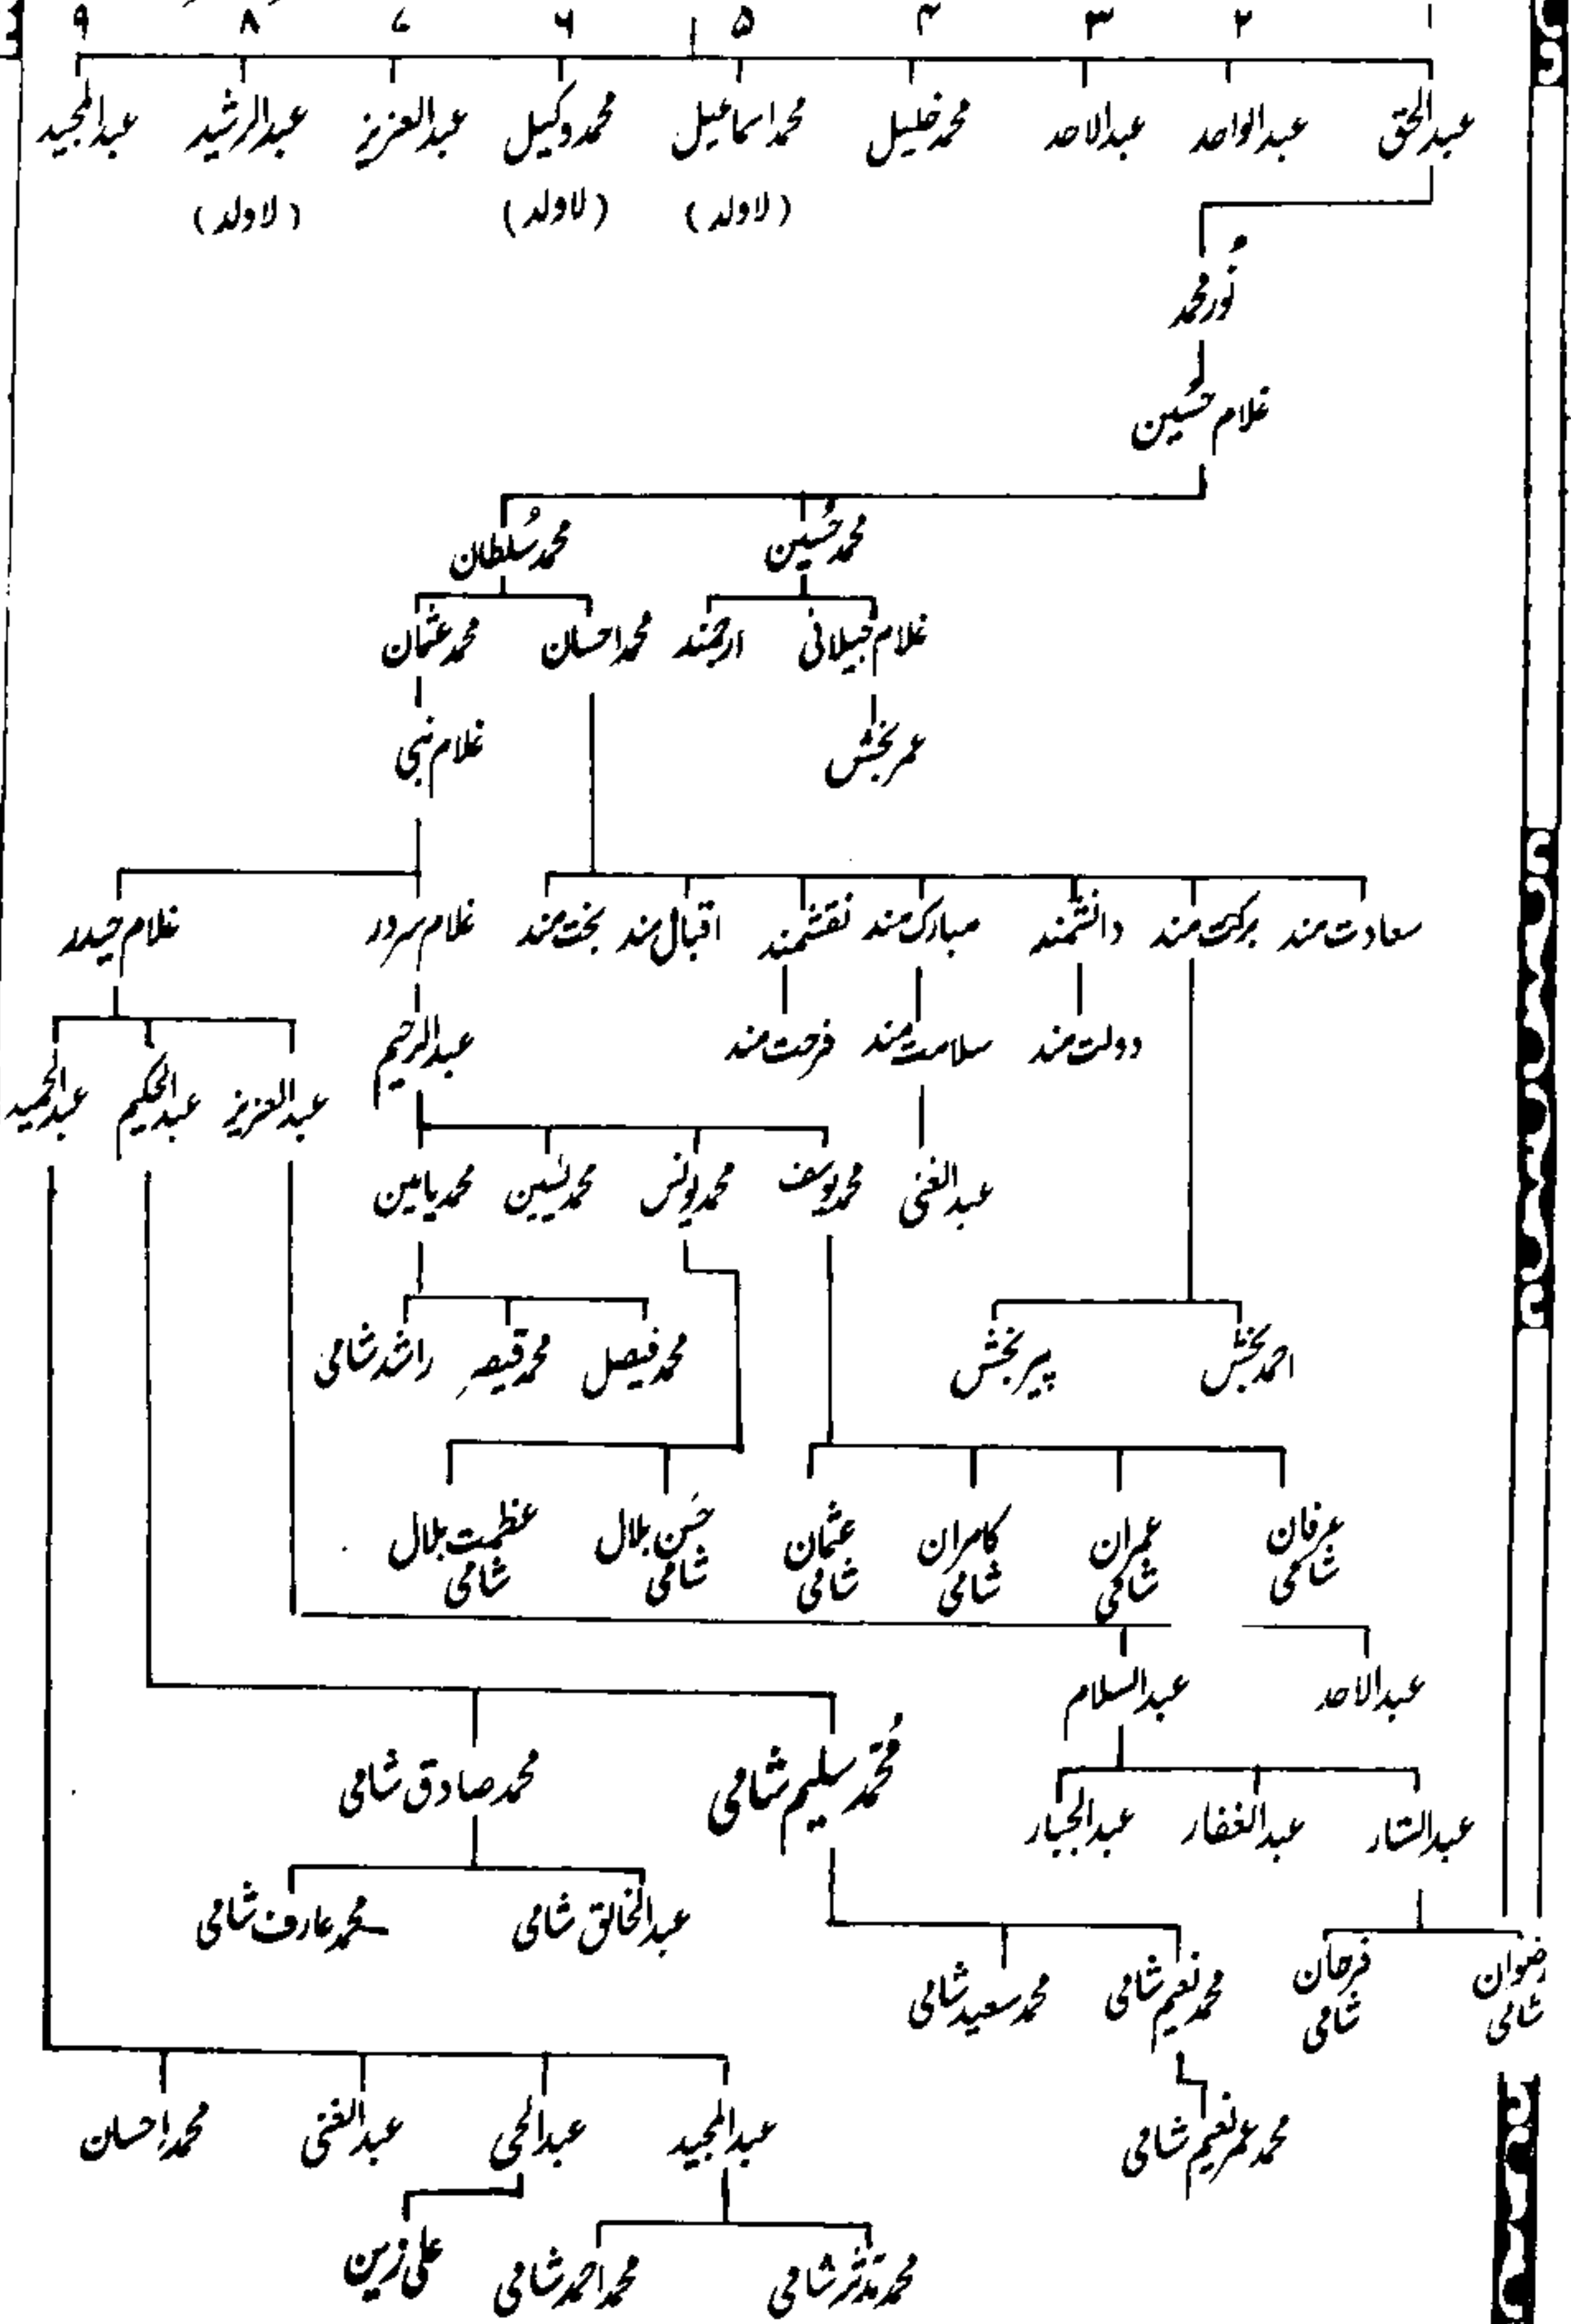 ۱ ۲ ۳ ۴ ۵ ۶ ۷ ۸ ۹
عبدالحق عبدالواحد عبدالاحد محمد خلیل محمد اسماعیل محمد وکیل عبدالعزیز عبدالرشید عبدالمجید
(لاولد) (لاولد) (لاولد)
نُور محمد
غلام حسین
محمد حُسین محمد سُلطان
غلام جیلانی ارجمند محمد احسان محمد عثمان
عمر بخش غلام نبی
سعادت مند برکت مند دانشمند مبارک مند نقشمند اقبال مند بخت مند غلام سرور غلام حیدر
دولت مند سلامت مند فرحت مند عبدالرحیم
عبدالعزیز عبدالحکیم عبدالحمید
عبدالغنی محمد یوسف محمد یونس محمد یٰسین محمد یامین
احمد بخش پیر بخش محمد فیصل محمد قیصر راشد شامی
عرفان عمران کامران عثمان حسن بلال عظمت بلال
شامی شامی شامی شامی شامی شامی
عبدالاحد عبدالسلام
محمد سلیم شامی محمد صادق شامی
عبدالستار عبدالغفار عبدالجبار
عبدالخالق شامی محمد عارف شامی
رضوان فرحان محمد نعیم شامی محمد سعید شامی
شامی شامی
عبدالمجید عبدالحی عبدالغنی محمد احسان
محمد عمر نعیم شامی
محمد مدثر شامی محمد احمد شامی علی زین